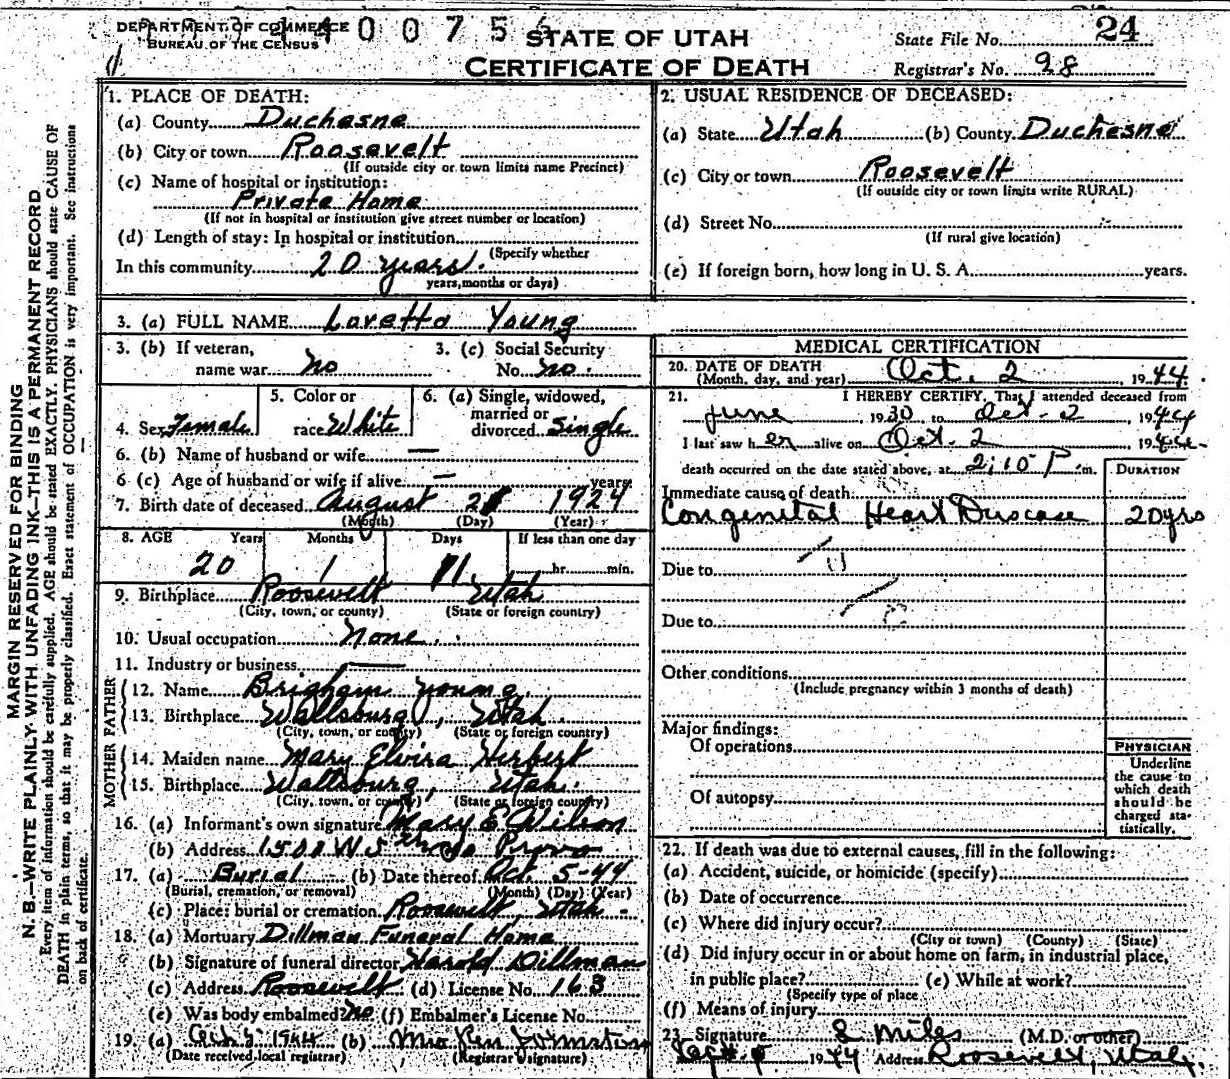 DEPARTMENT OF COMMERCE
BUREAU OF THE CENSUS
400756
STATE OF UTAH
CERTIFICATE OF DEATH
State File No. 24
Registrar's No. 98
MARGIN RESERVED FOR BINDING
N. B.—WRITE PLAINLY WITH UNFADING INK—THIS IS A PERMANENT RECORD
Every item of information should be carefully supplied. AGE should be stated EXACTLY. PHYSICIANS should state CAUSE OF
DEATH in plain terms, so that it may be properly classified. Exact statement of OCCUPATION is very important. See instructions
on back of certificate.
1. PLACE OF DEATH:
(a) County Duchesne
(b) City or town Roosevelt
(If outside city or town limits name Precinct)
(c) Name of hospital or institution:
Private Home
(If not in hospital or institution give street number or location)
(d) Length of stay: In hospital or institution
(Specify whether
In this community 20 years.
years, months or days)
2. USUAL RESIDENCE OF DECEASED:
(a) State Utah (b) County Duchesne
(c) City or town Roosevelt
(If outside city or town limits write RURAL)
(d) Street No.
(If rural give location)
(e) If foreign born, how long in U. S. A. years.
3. (a) FULL NAME Loretta Young
3. (b) If veteran, name war no
3. (c) Social Security No. no.
4. Sex Female
5. Color or race White
6. (a) Single, widowed, married or divorced Single
6. (b) Name of husband or wife —
6 (c) Age of husband or wife if alive — years
7. Birth date of deceased August 21 1924
(Month) (Day) (Year)
8. AGE Years Months Days If less than one day
20 1 11 hr. min.
9. Birthplace Roosevelt Utah
(City, town, or county) (State or foreign country)
10. Usual occupation none.
11. Industry or business —
FATHER
12. Name Brigham Young
13. Birthplace Wallsburg, Utah.
(City, town, or county) (State or foreign country)
MOTHER
14. Maiden name Mary Elvira Herbert
15. Birthplace Wallsburg, Utah.
(City, town, or county) (State or foreign country)
16. (a) Informant's own signature Mary E Wilson
(b) Address 1500 W 5th Provo
17. (a) Burial (b) Date thereof Oct. 5-44
(Burial, cremation, or removal) (Month) (Day) (Year)
(c) Place: burial or cremation Roosevelt, Utah.
18. (a) Mortuary Dillman Funeral Home
(b) Signature of funeral director Harold Dillman
(c) Address Roosevelt (d) License No. 163
(e) Was body embalmed? No (f) Embalmer's License No.
19. (a) Oct 5 1944 (b) Mrs
(Date received local registrar) (Registrar's signature)
MEDICAL CERTIFICATION
20. DATE OF DEATH
(Month, day, and year) Oct. 2, 1944
21. I HEREBY CERTIFY, That I attended deceased from
June 1930 to Oct-2 1944
I last saw her alive on Oct-2 1944
death occurred on the date stated above, at 2:10 P.m.
DURATION
Immediate cause of death
Congenital Heart Disease 20yrs
Due to
Due to
Other conditions
(Include pregnancy within 3 months of death)
Major findings:
Of operations
Of autopsy
PHYSICIAN
Underline
the cause to
which death
should be
charged sta-
tistically.
22. If death was due to external causes, fill in the following:
(a) Accident, suicide, or homicide (specify)
(b) Date of occurrence
(c) Where did injury occur?
(City or town) (County) (State)
(d) Did injury occur in or about home on farm, in industrial place,
in public place? (e) While at work?
(Specify type of place
(f) Means of injury
23. Signature Miles (M.D. or other)
1944 Address Roosevelt, Utah